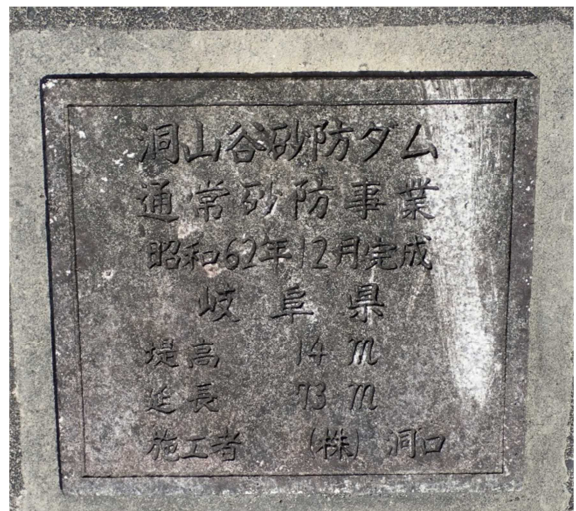 洞山谷砂防ダム
通常砂防事業
昭和62年12月完成
岐阜県
堤高 14 m
延長 73 m
施工者 (株) 洞口